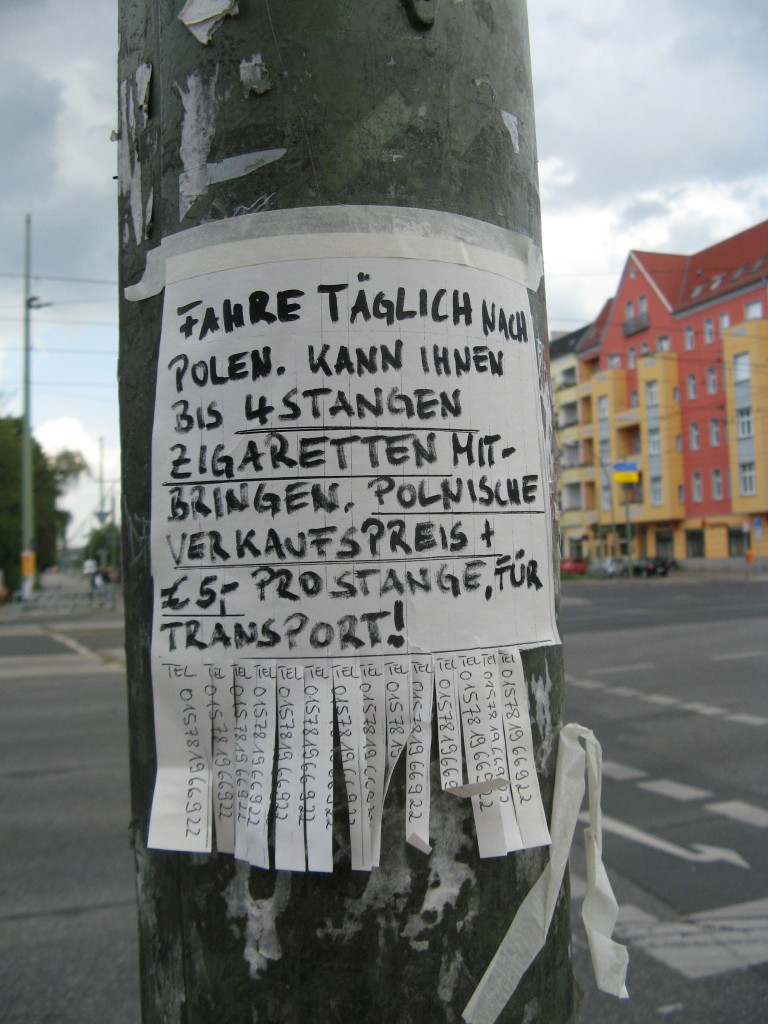 FAHRE TÄGLICH NACH
POLEN. KANN IHNEN
BIS 4 STANGEN
ZIGARETTEN MIT-
BRINGEN. POLNISCHE
VERKAUFSPREIS +
€ 5,- PRO STANGE, FÜR
TRANSPORT!
TEL 01578 1966922
TEL 01578 1966922
TEL 01578 1966922
TEL 01578 1966922
TEL 01578 1966922
TEL 01578 1966922
TEL 01578 1966922
TEL 01578 1966922
TEL 01578 19
TEL 66922
TEL 01578 1966
TEL 01578 1966922
TEL 01578 1966922
TEL 01578 1966922